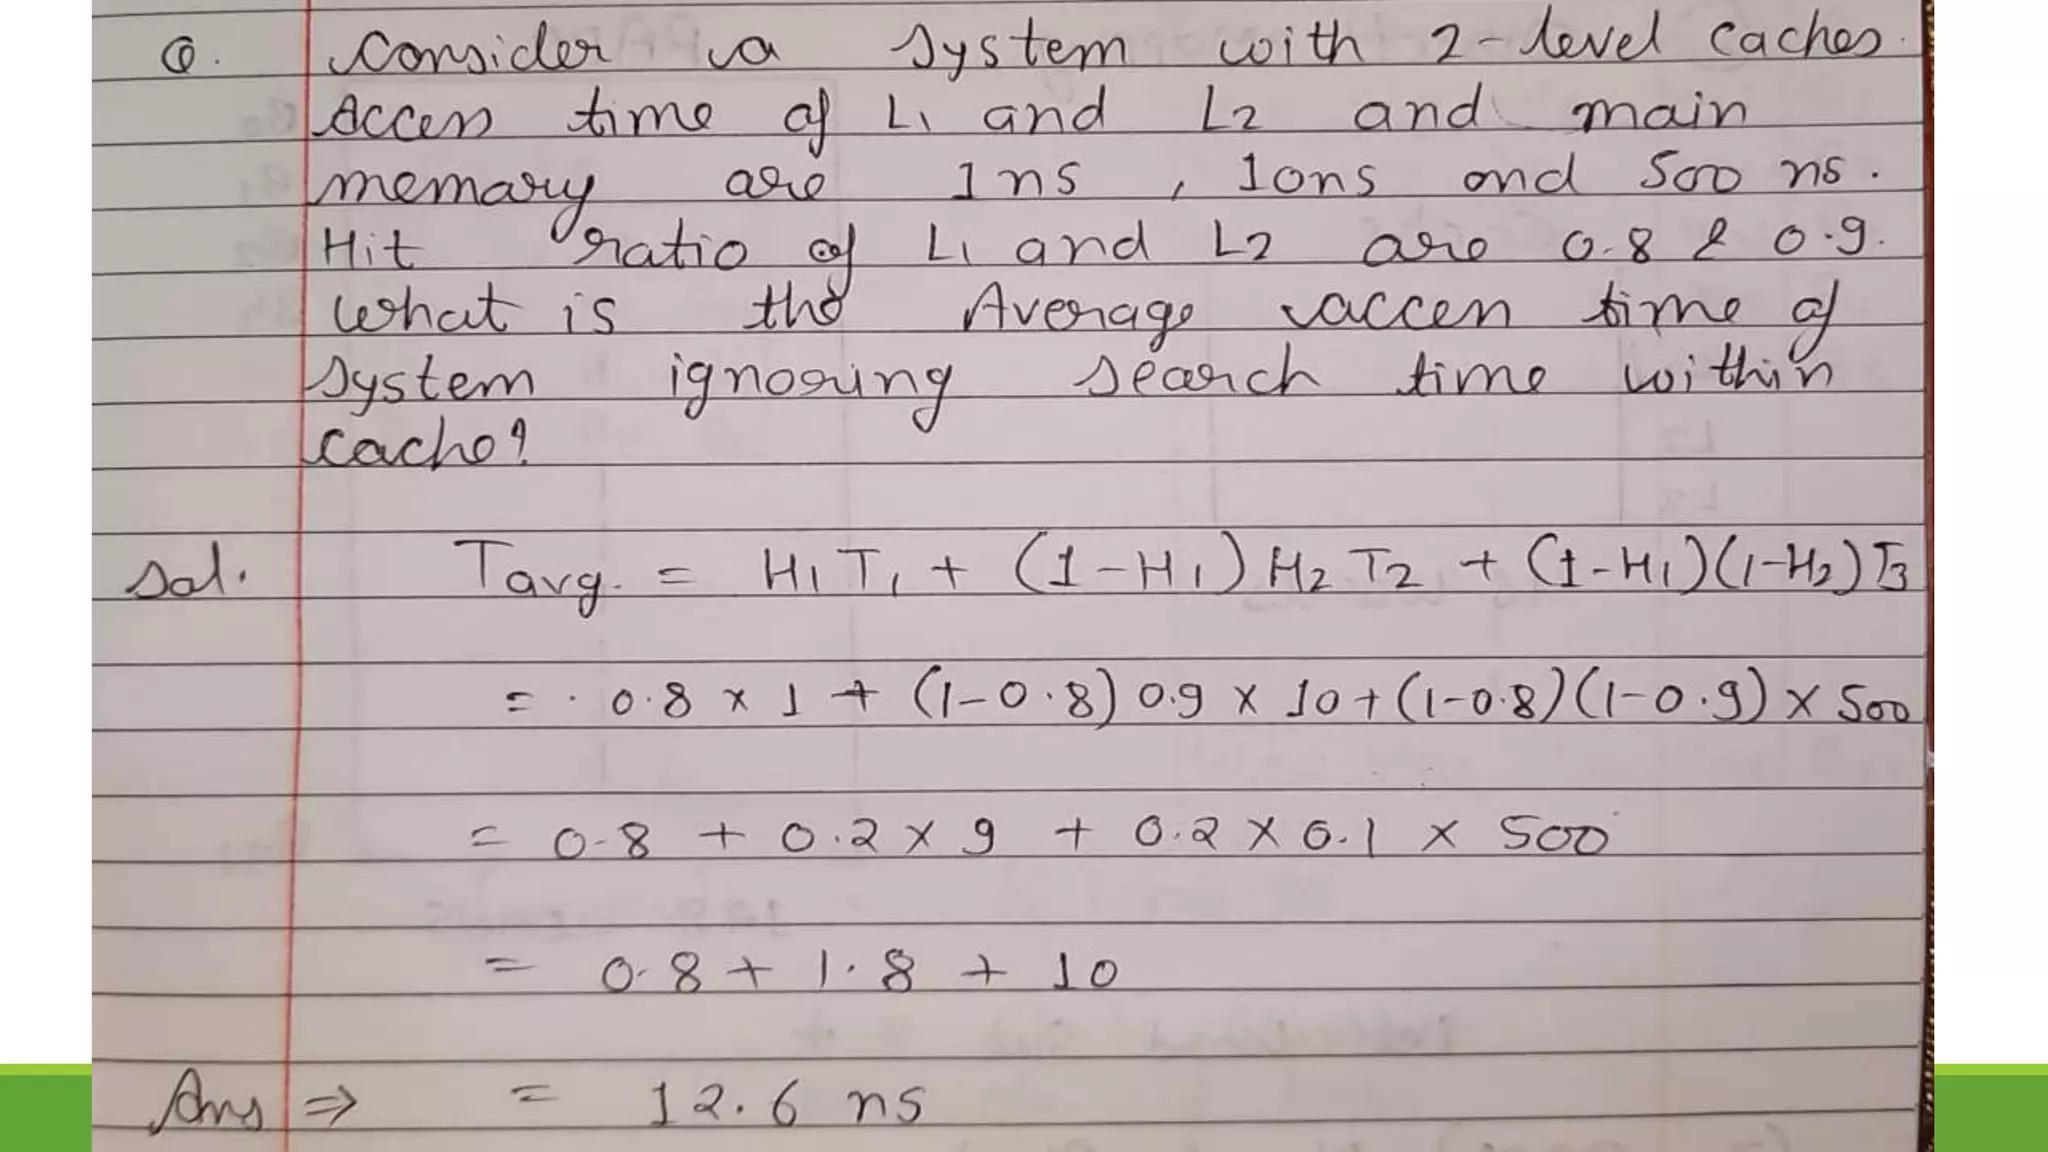 Q. Consider a system with 2-level caches.
Access time of L1 and L2 and main
memary are 1ns , 10ns and 500 ns.
Hit ratio of L1 and L2 are 0.8 & 0.9.
What is the Average access time of
system ignoring search time within
cache?
Sol. Tavg. = H1T1 + (1-H1) H2 T2 + (1-H1)(1-H2)T3
= 0.8 x 1 + (1-0.8) 0.9 x 10 + (1-0.8)(1-0.9) x 500
= 0.8 + 0.2 x 9 + 0.2 x 0.1 x 500
= 0.8 + 1.8 + 10
Ans ⇒ = 12.6 ns